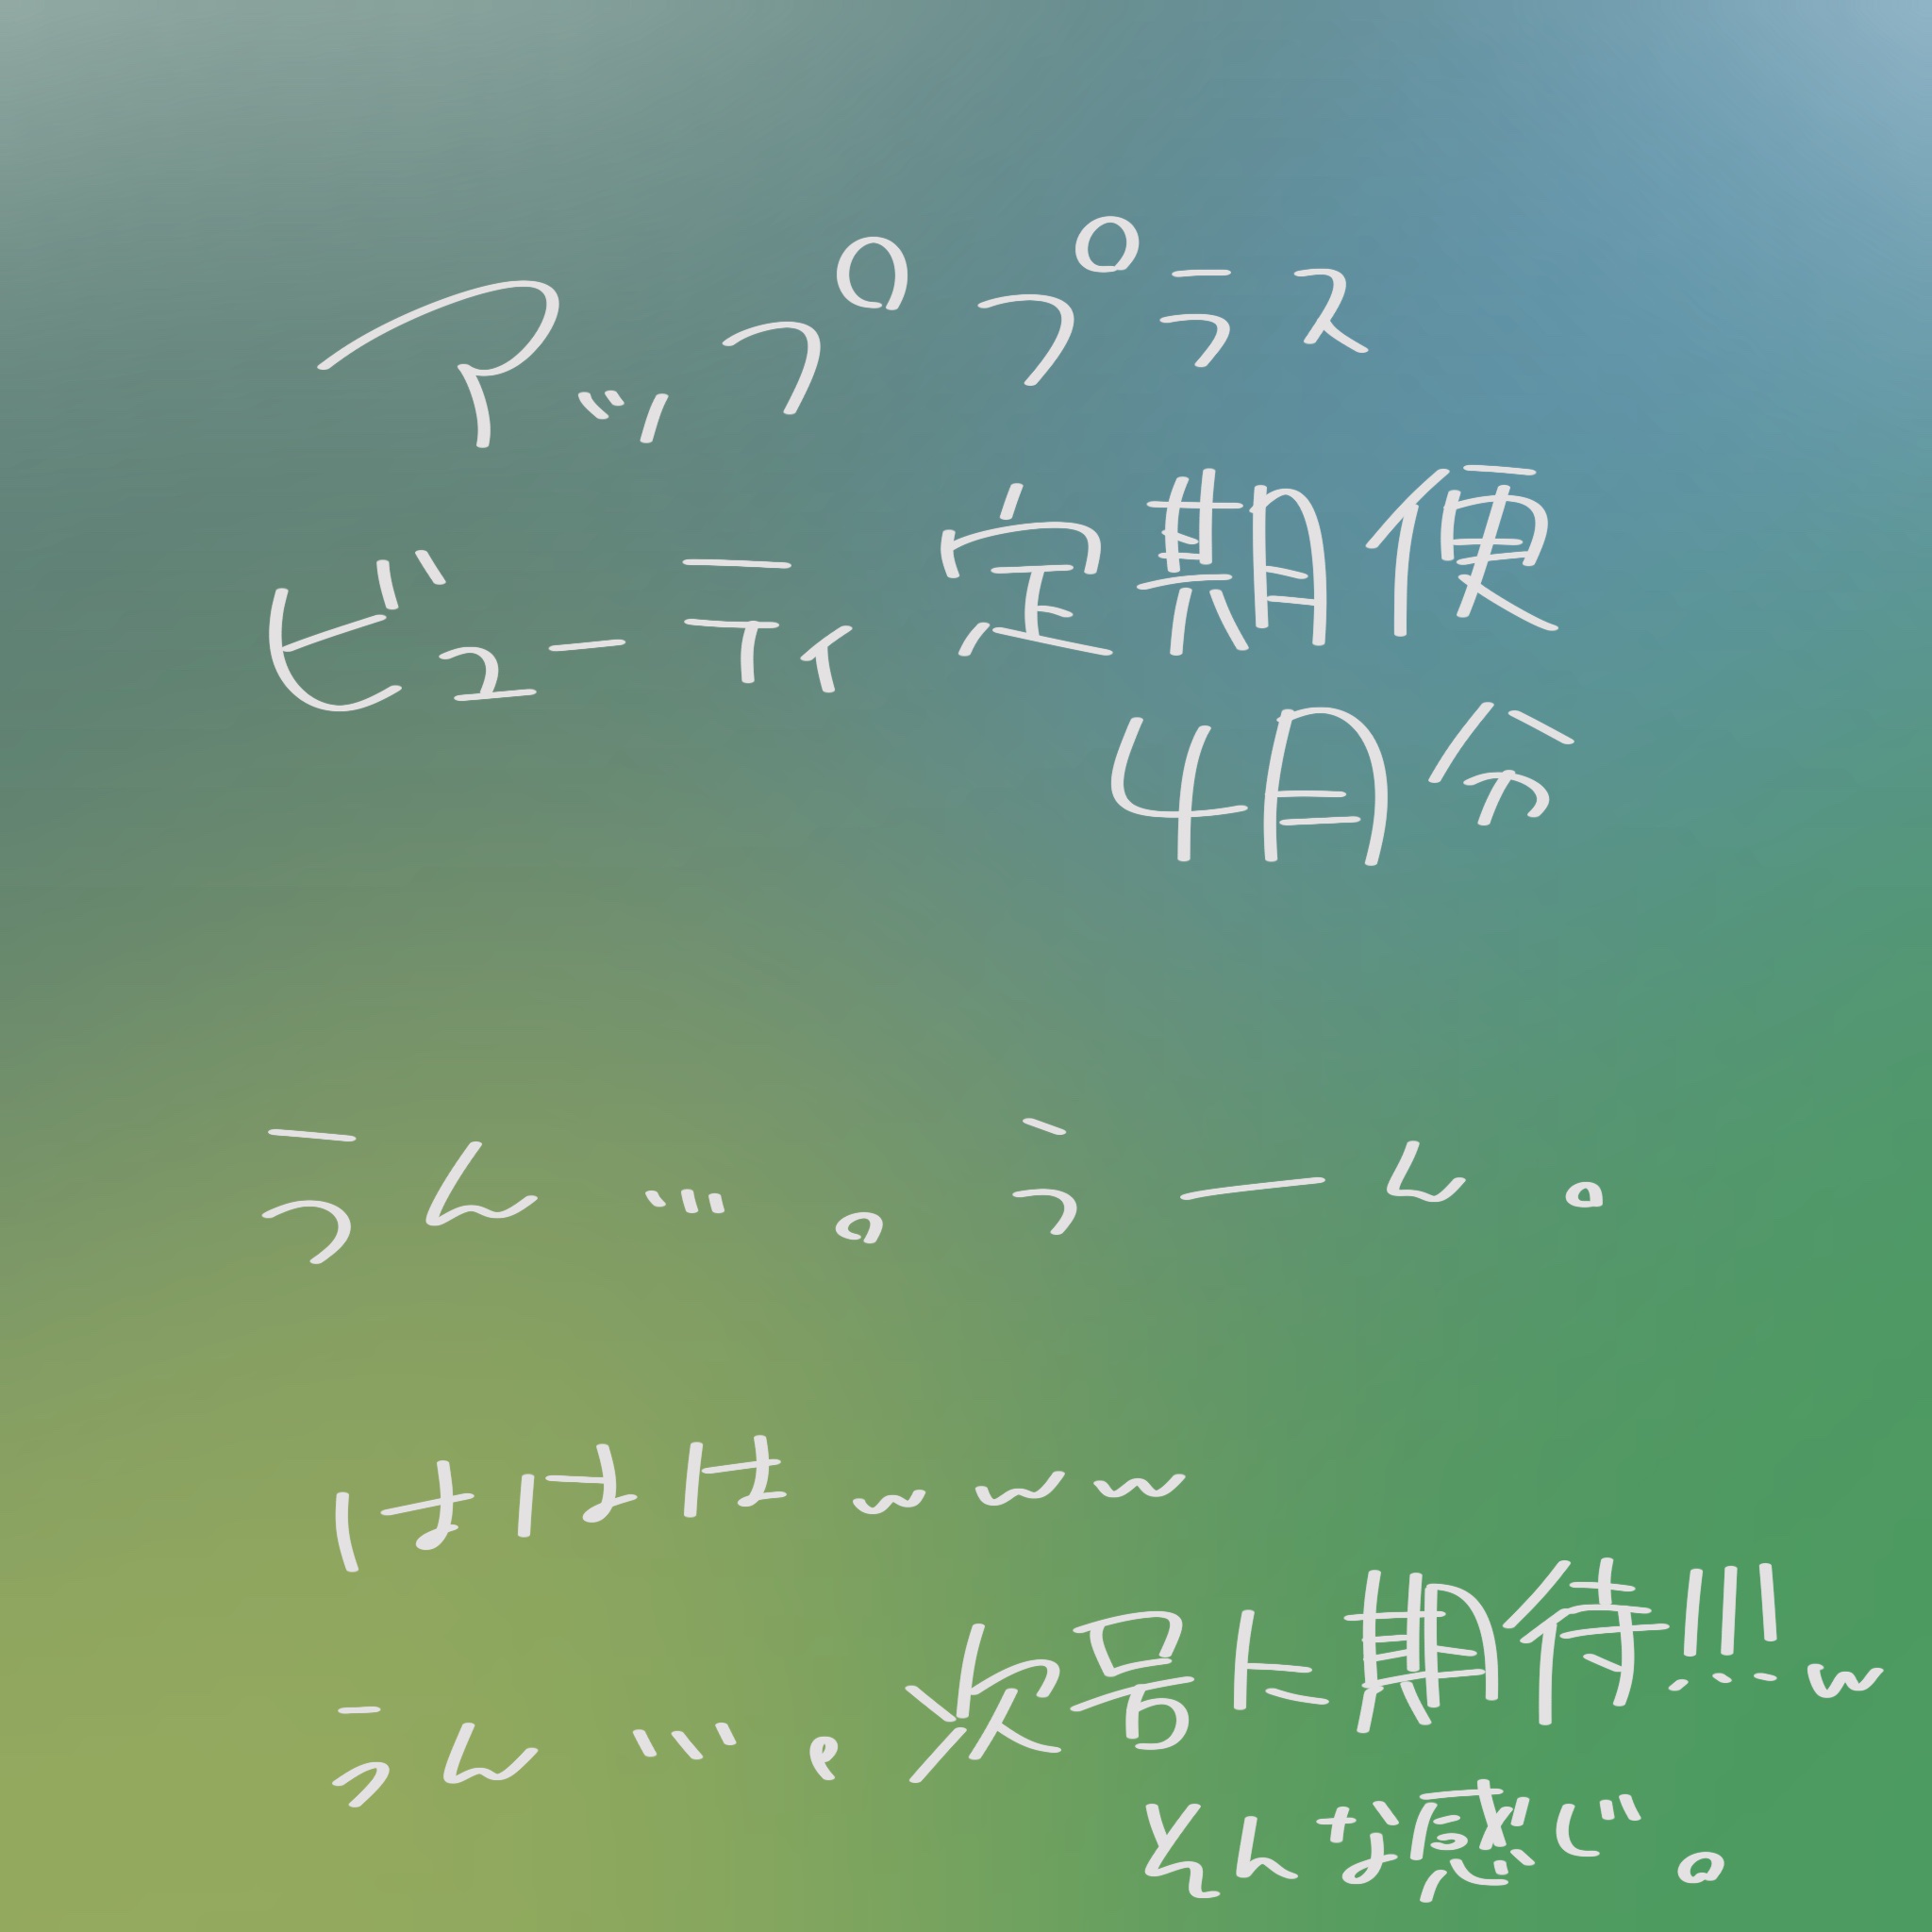 アッププラス
ビューティ定期便
4月分
うん…。うーん。
ははは w w w
うん…。次号に期待!!!w
そんな感じ。